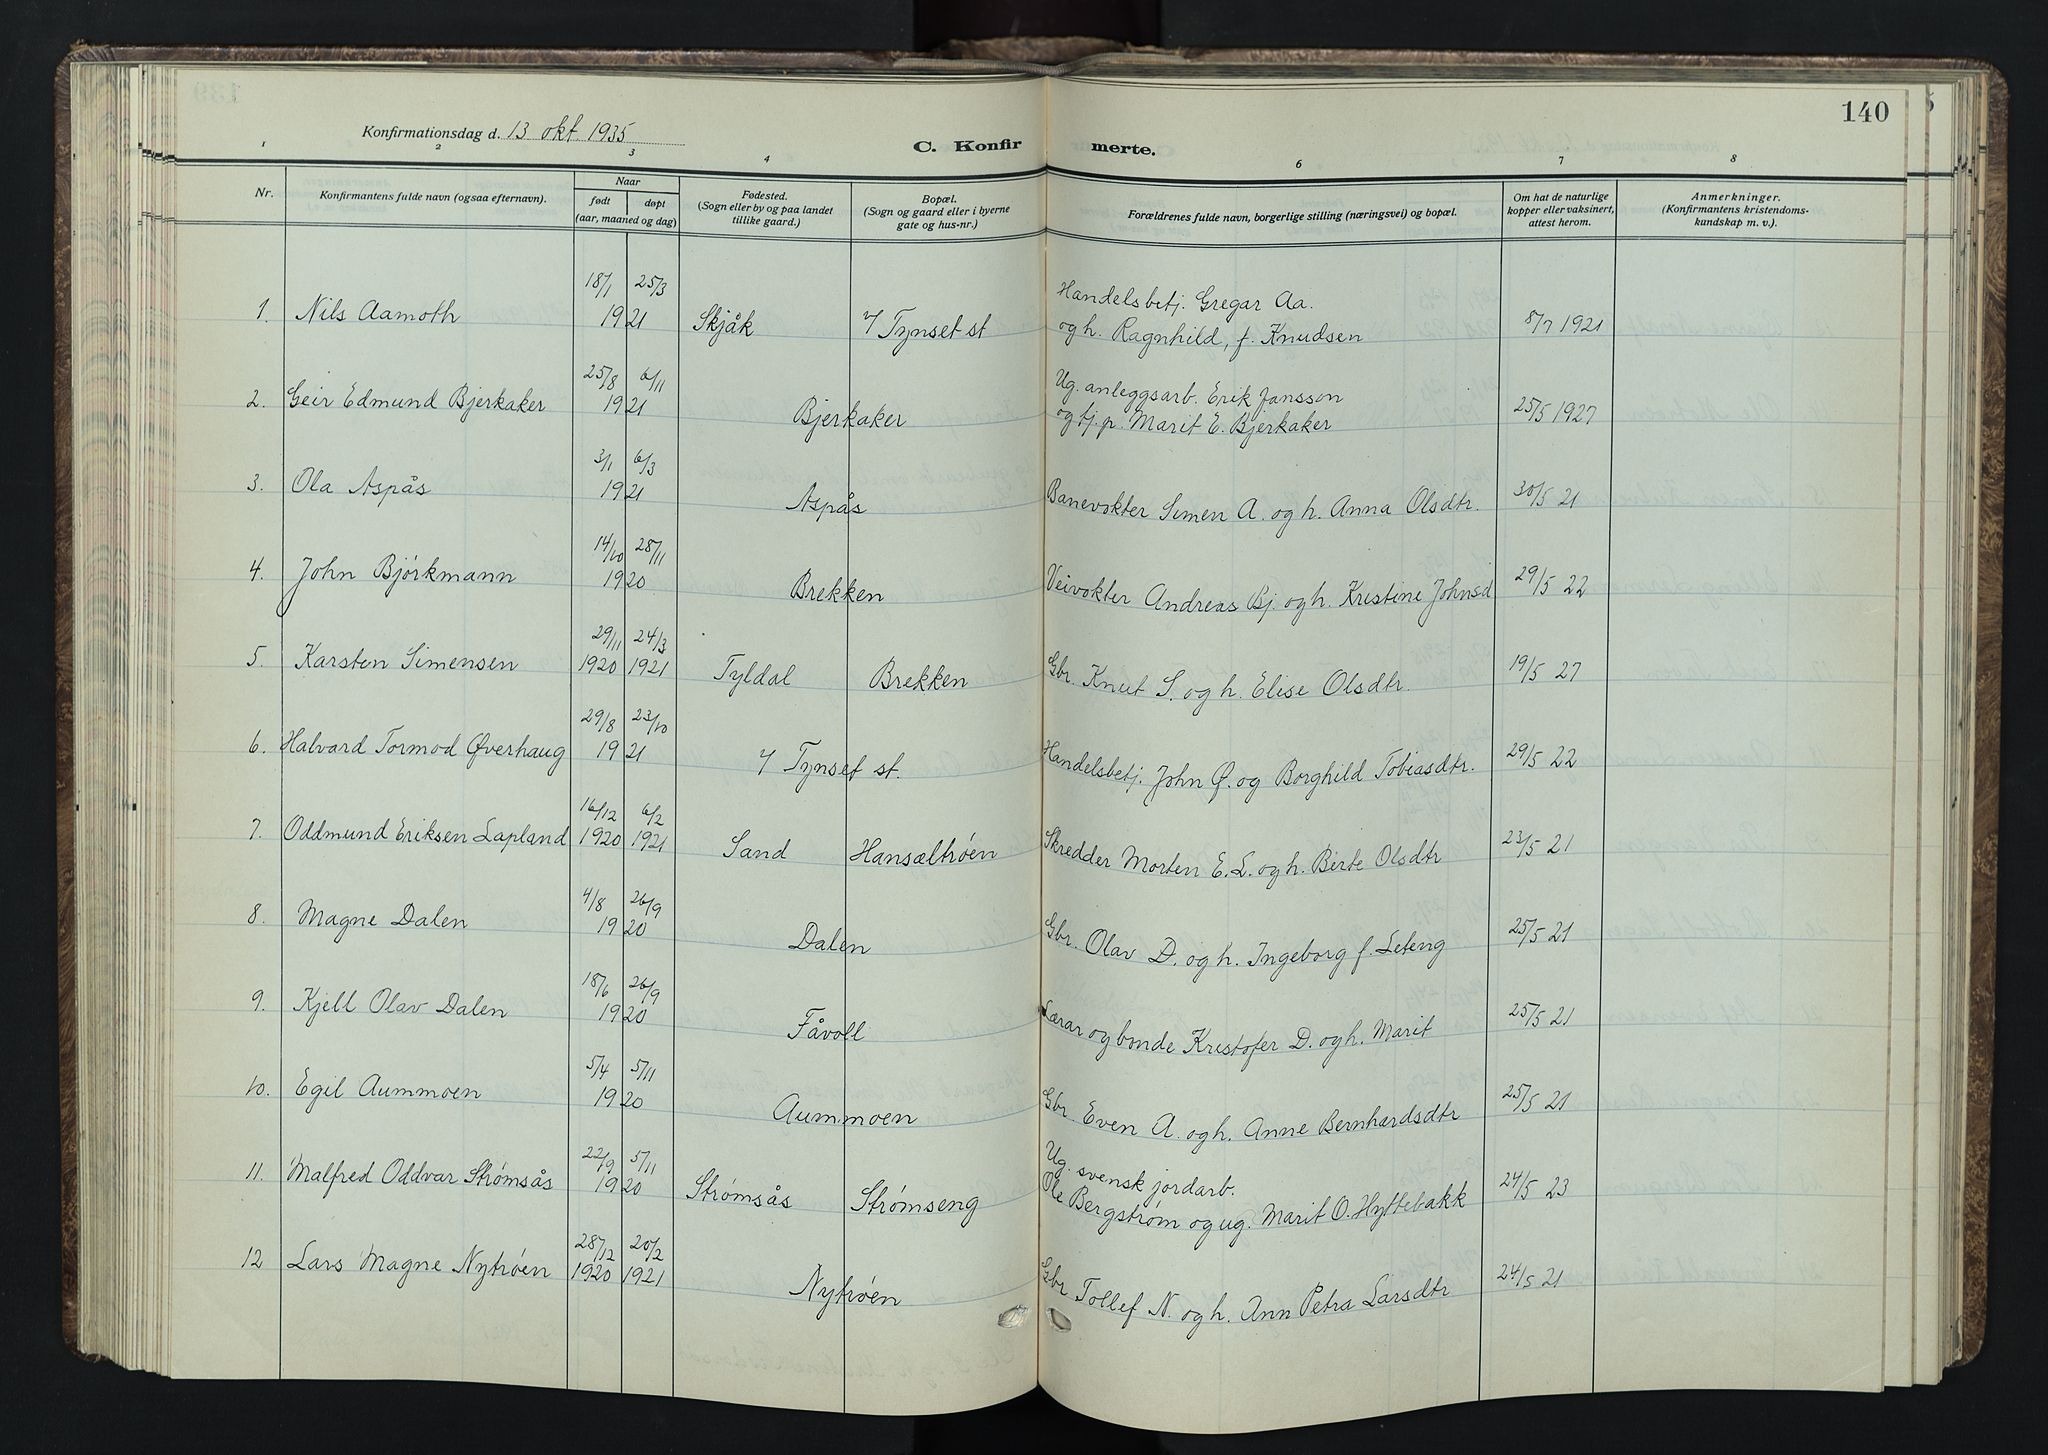 140
Konfirmationsdag d. 13 okt. 1935
C. Konfirmerte.
1 2 3 4 6 7 8
Nr.
Konfirmantens fulde navn (ogsaa efternavn).
Naar
født døpt
(aar, maaned og dag)
Fødested.
(Sogn eller by og paa landet
tillike gaard.)
Bopæl.
(Sogn og gaard eller i byerne
gate og hus-nr.)
Forældrenes fulde navn, borgerlige stilling (næringsvei) og bopæl.
Om hat de naturlige
kopper eller vaksinert,
attest herom.
Anmerkninger.
(Konfirmantens kristendoms-
kundskap m. v.).
18/1 25/3 Handelsbetj. Gregar Aa.
1. Nils Aamoth 1921 Skjåk Tynset st og h. Ragnhild, f. Knudsen 8/7 1921
25/8 6/11 Ug. anleggsarb. Erik Jansson
2. Geir Edmund Bjerkaker 1921 Bjerkaker og tj.p. Marit E. Bjerkaker 25/5 1927
3/1 6/3
3. Ola Aspås 1921 Aspås Banevokter Simen A. og h. Anna Olsdtr. 30/5 21
14/10 28/11
4. John Bjørkmann 1920 Brekken Veivokter Andreas Bj. og h. Kristine Johnsd 29/5 22
29/11 24/3
5. Karsten Simensen 1920 1921 Tyldal Brekken Gbr. Knut S. og h. Elise Olsdtr. 19/5 27
29/8 23/10
6. Halvard Tormod Øverhaug 1921 Tynset st. Handelsbetj. John Ø. og Borghild Tobiasdtr. 29/5 22
16/12 6/2
7. Oddmund Eriksen Lapland 1920 1921 Sand Hansæltrøen Skredder Morten E. L. og h. Birte Olsdtr 23/5 21
4/8 26/9
8. Magne Dalen 1920 Dalen Gbr. Olav D. og h. Ingeborg f. Leteng 25/5 21
18/6 26/9
9. Kjell Olav Dalen 1920 Fåvoll Lærar og bonde Kristofer D. og h. Marit 25/5 21
5/4 5/11
10. Egil Aummoen 1920 Aummoen Gbr. Even A. og h. Anne Bernhardsdtr 25/5 21
22/9 5/11 Ug. svensk jordarb.
11. Malfred Oddvar Strømsås 1920 Strømsås Strømseng Ole Bergstrøm og ug. Marit O. Hyttebakk 24/5 23
28/12 20/2
12 Lars Magne Nytrøen 1920 1921 Nytrøen Gbr Tollef N. og h. Ann Petra Larsdtr 24/5 21